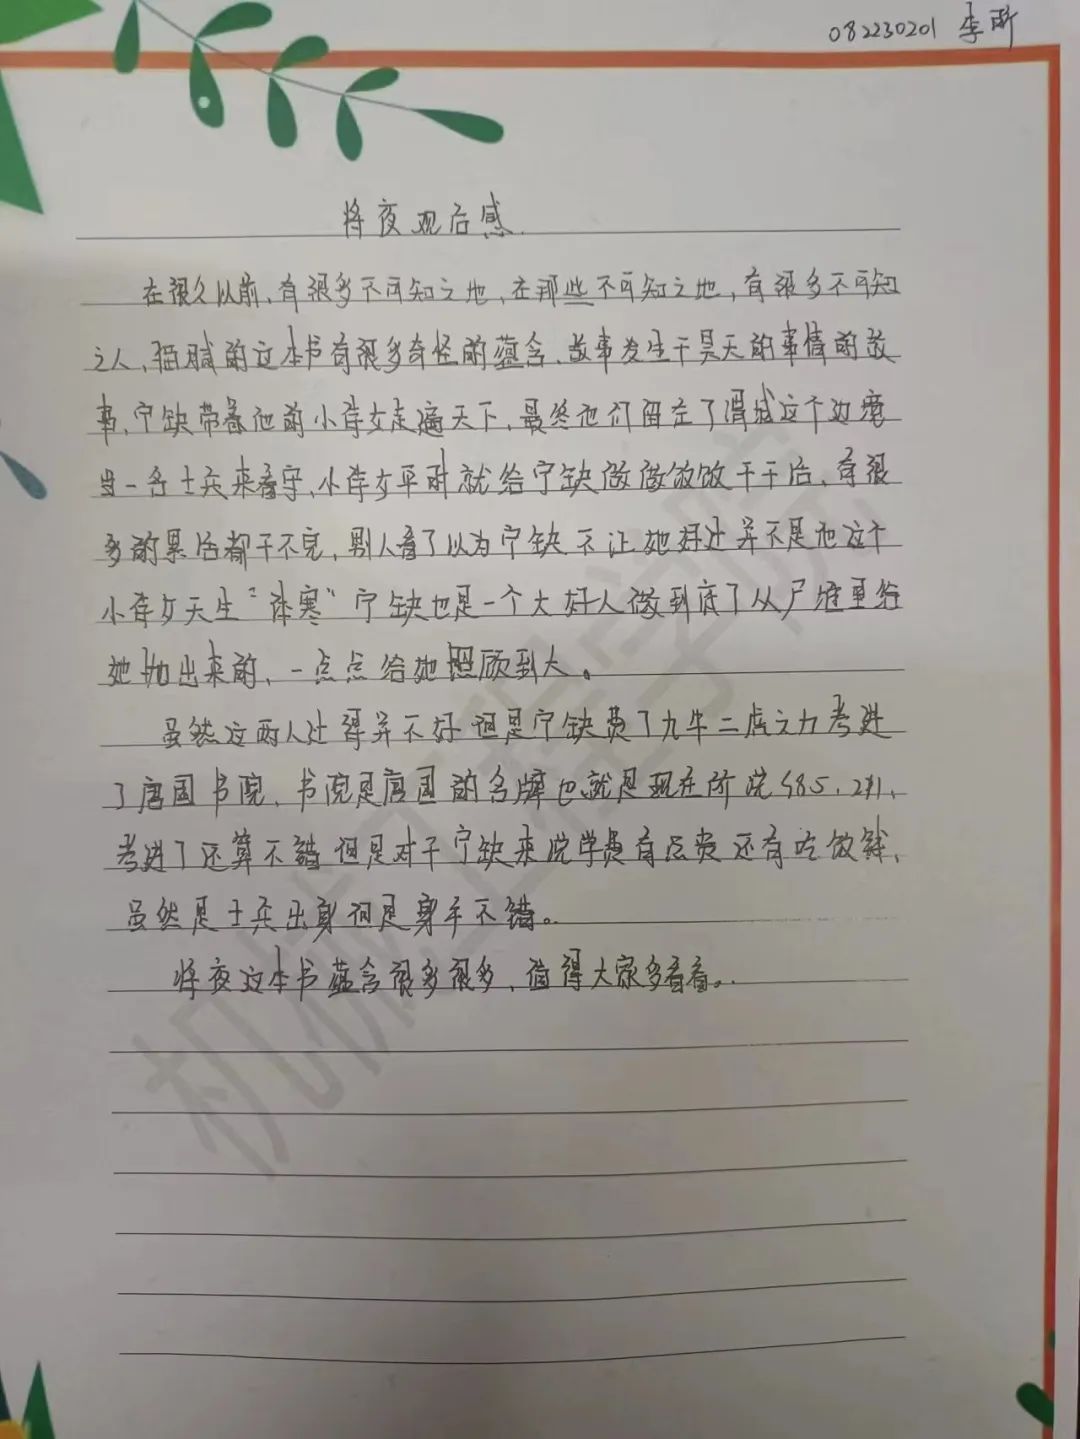 082230201 李昕
将夜观后感
在很久以前,有很多不可知之地,在那些不可知之地,有很多不可知
之人,猫腻的这本书有很多奇怪的蕴含,故事发生于昊天的事情的故
事,宁缺带着他的小侍女走遍天下,最终他们留在了渭城这个边境
当一名士兵来看守,小侍女平时就给宁缺做做饭干干活,有很
多的累活都干不完,别人看了以为宁缺不让她好过并不是他这个
小侍女天生“体寒”宁缺也是一个大好人做到底了从尸堆里给
她抛出来的,一点点给她照顾到大。
虽然这两人过得并不好但是宁缺费了九牛二虎之力考进
了唐国书院,书院是唐国的名牌也就是现在的院985,211,
考进了还算不错但是对于宁缺来说学费有点贵还有吃饭钱,
虽然是士兵出身但是身手不错。
将夜这本书蕴含很多很多,值得大家多看看。
机械工程学院